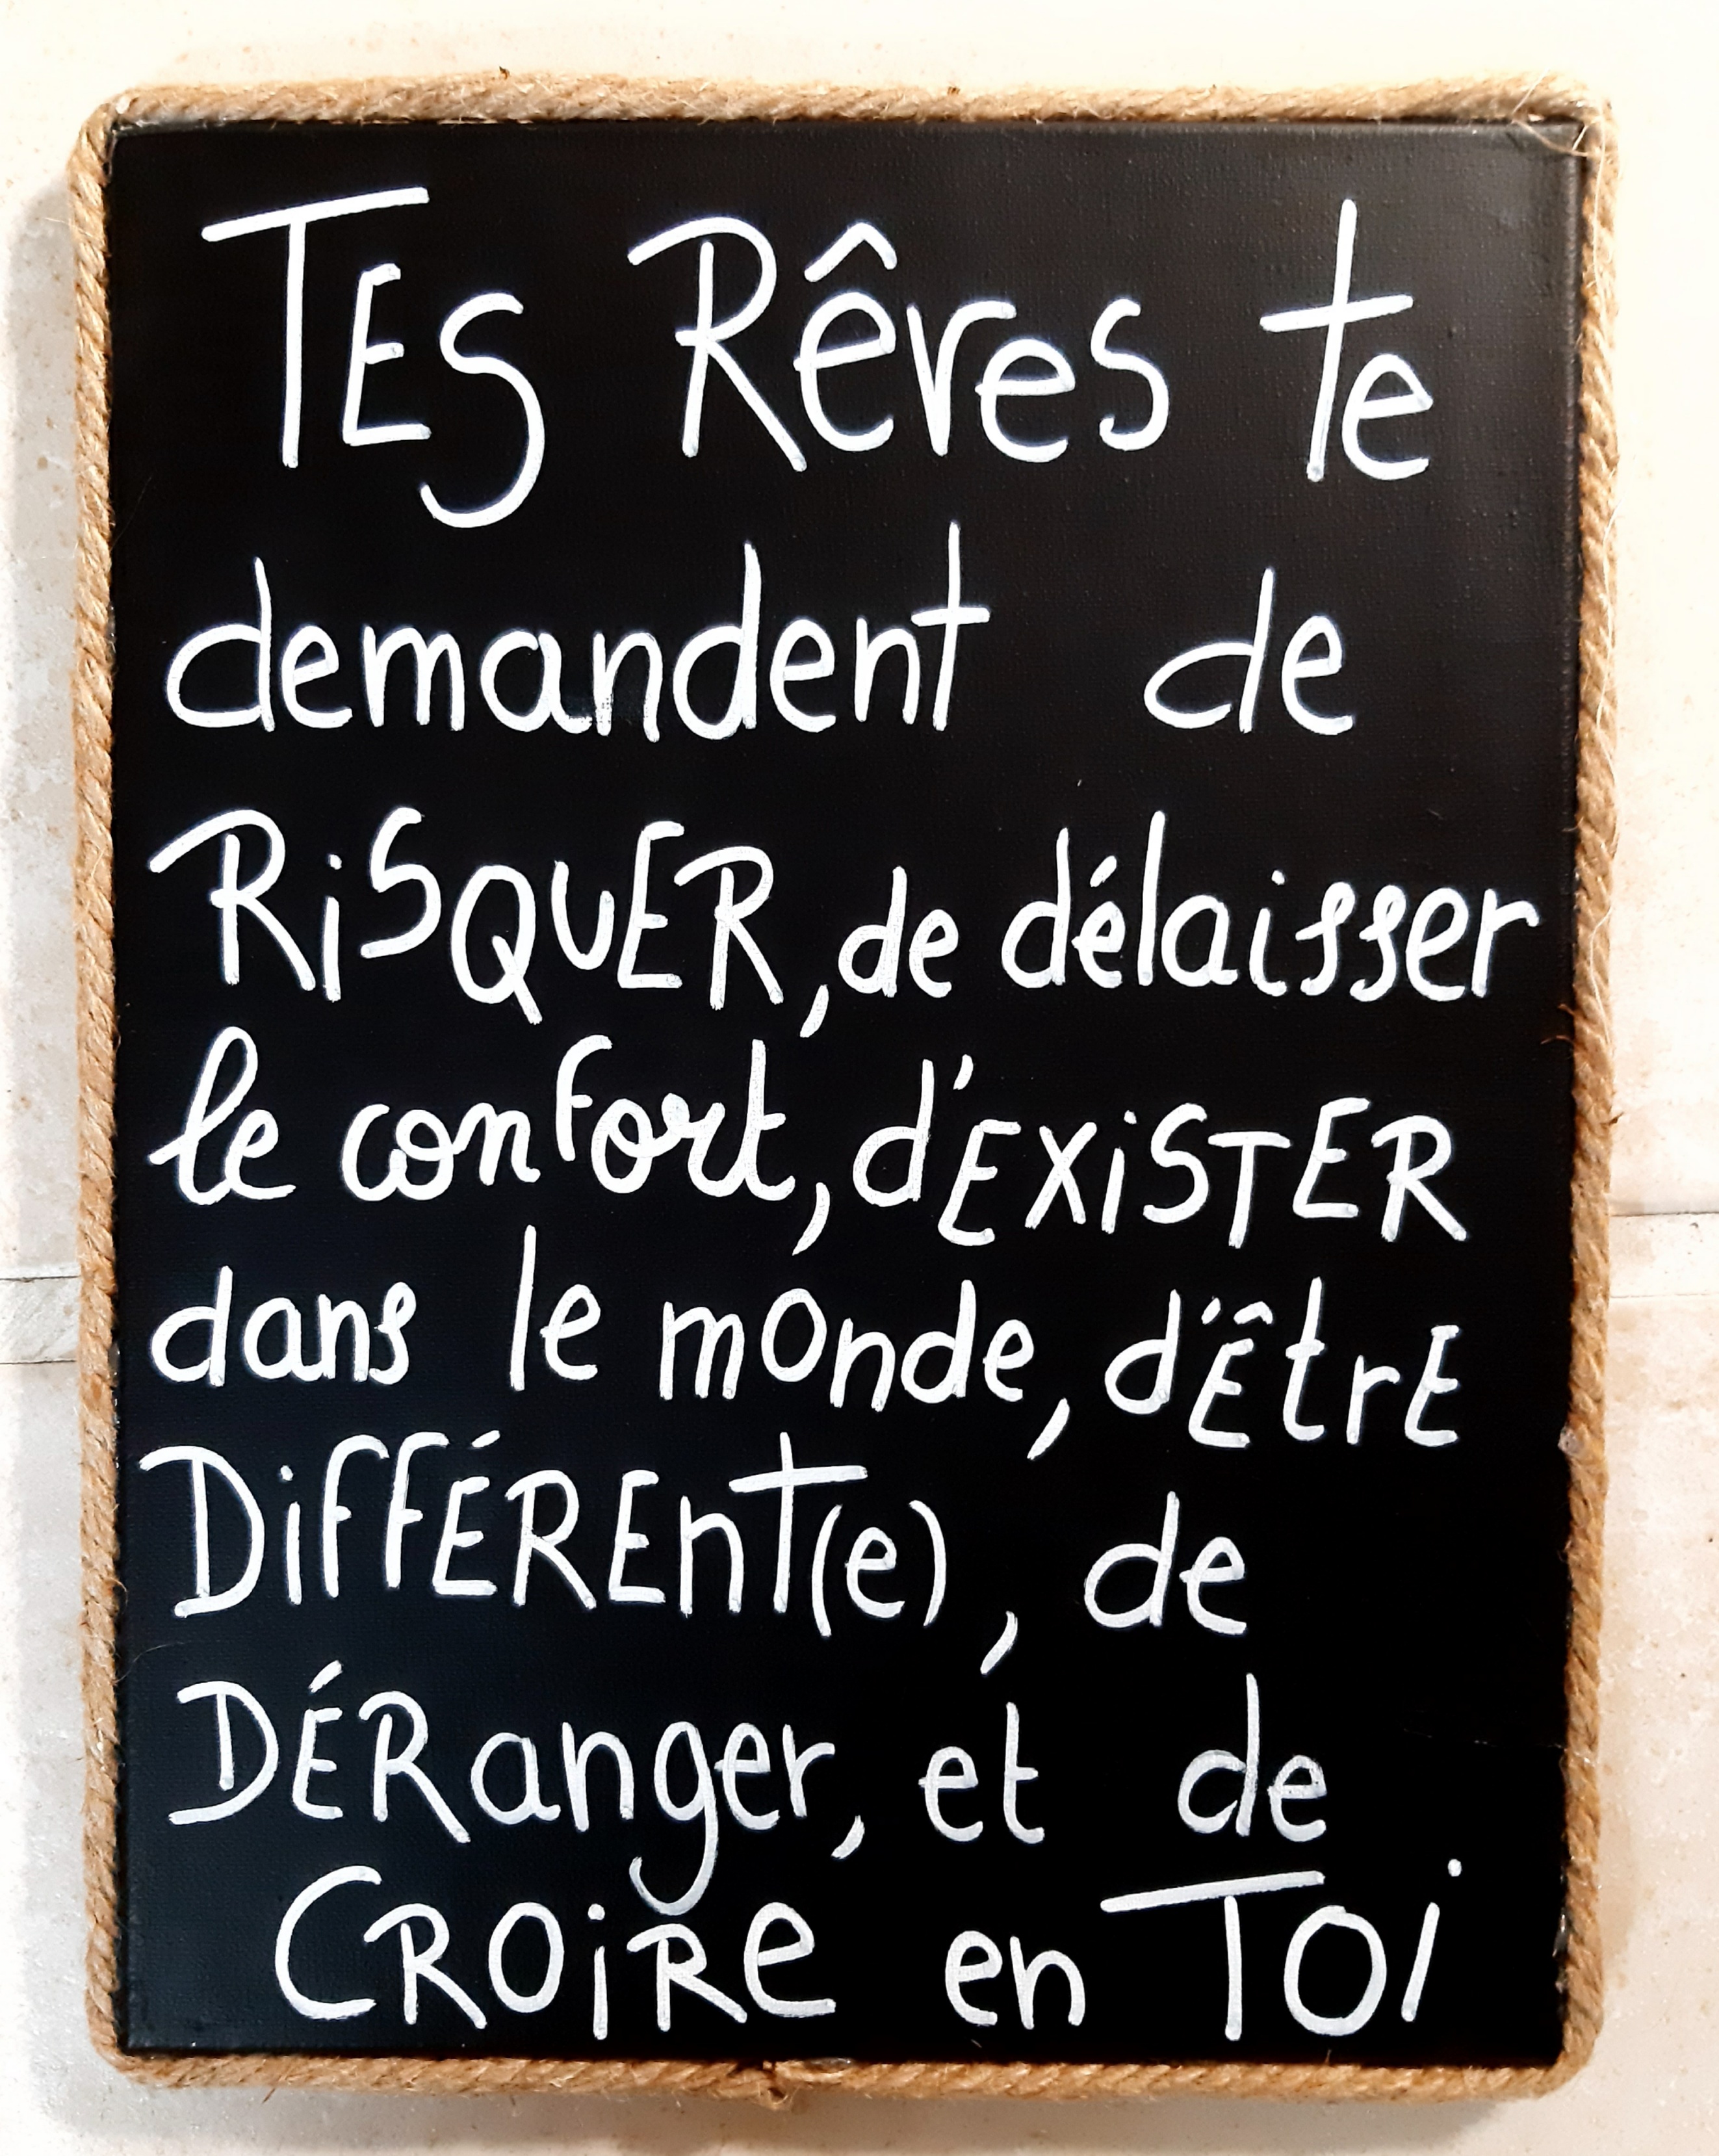 TES Rêves te
demandent de
RiSQUER, de délaisser
le confort, d'EXiSTER
dans le monde, d'ÊtrE
DiFFÉREnT(e), de
DÉRanger, et de
CROiRe en TOi